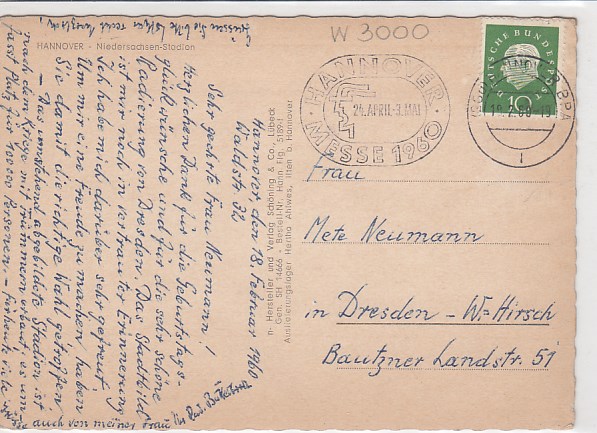 W 3000
HANNOVER - Niedersachsen-Stadion
HANNOVER
MESSE 1960
24.APRIL-3.MAI
DEUTSCHE BUNDESPOST
10
HANNOVER
Frau
Mete Neumann
in Dresden - W.=Hirsch
Bautzner Landstr. 51
Hersteller und Verlag Schöning & Co., Lübeck
Gen. SH 14666 - Bestell-Nr. Hann. Flg. 5189
Auslieferungslager Hertha Ahlwes, Ilten b. Hannover
Hannover, den 18. Februar 1960
Waldstr. 32
Sehr geehrte Frau Neumann!
Herzlichen Dank für die Geburtstags-
glückwünsche und für die sehr schöne
Radierung von Dresden. Das Stadtbild
ist mir noch in vertrauter Erinnerung
Ich habe mich darüber sehr gefreut.
Um mir eine Freude zu machen haben
Sie damit die richtige Wahl getroffen.
- Das umstehend abgebildete Stadion ist
nach dem Kriege mit Trümmern erbaut, es um-
fasst Platz für 100000 Personen. -
auch von meiner Frau
Ihr